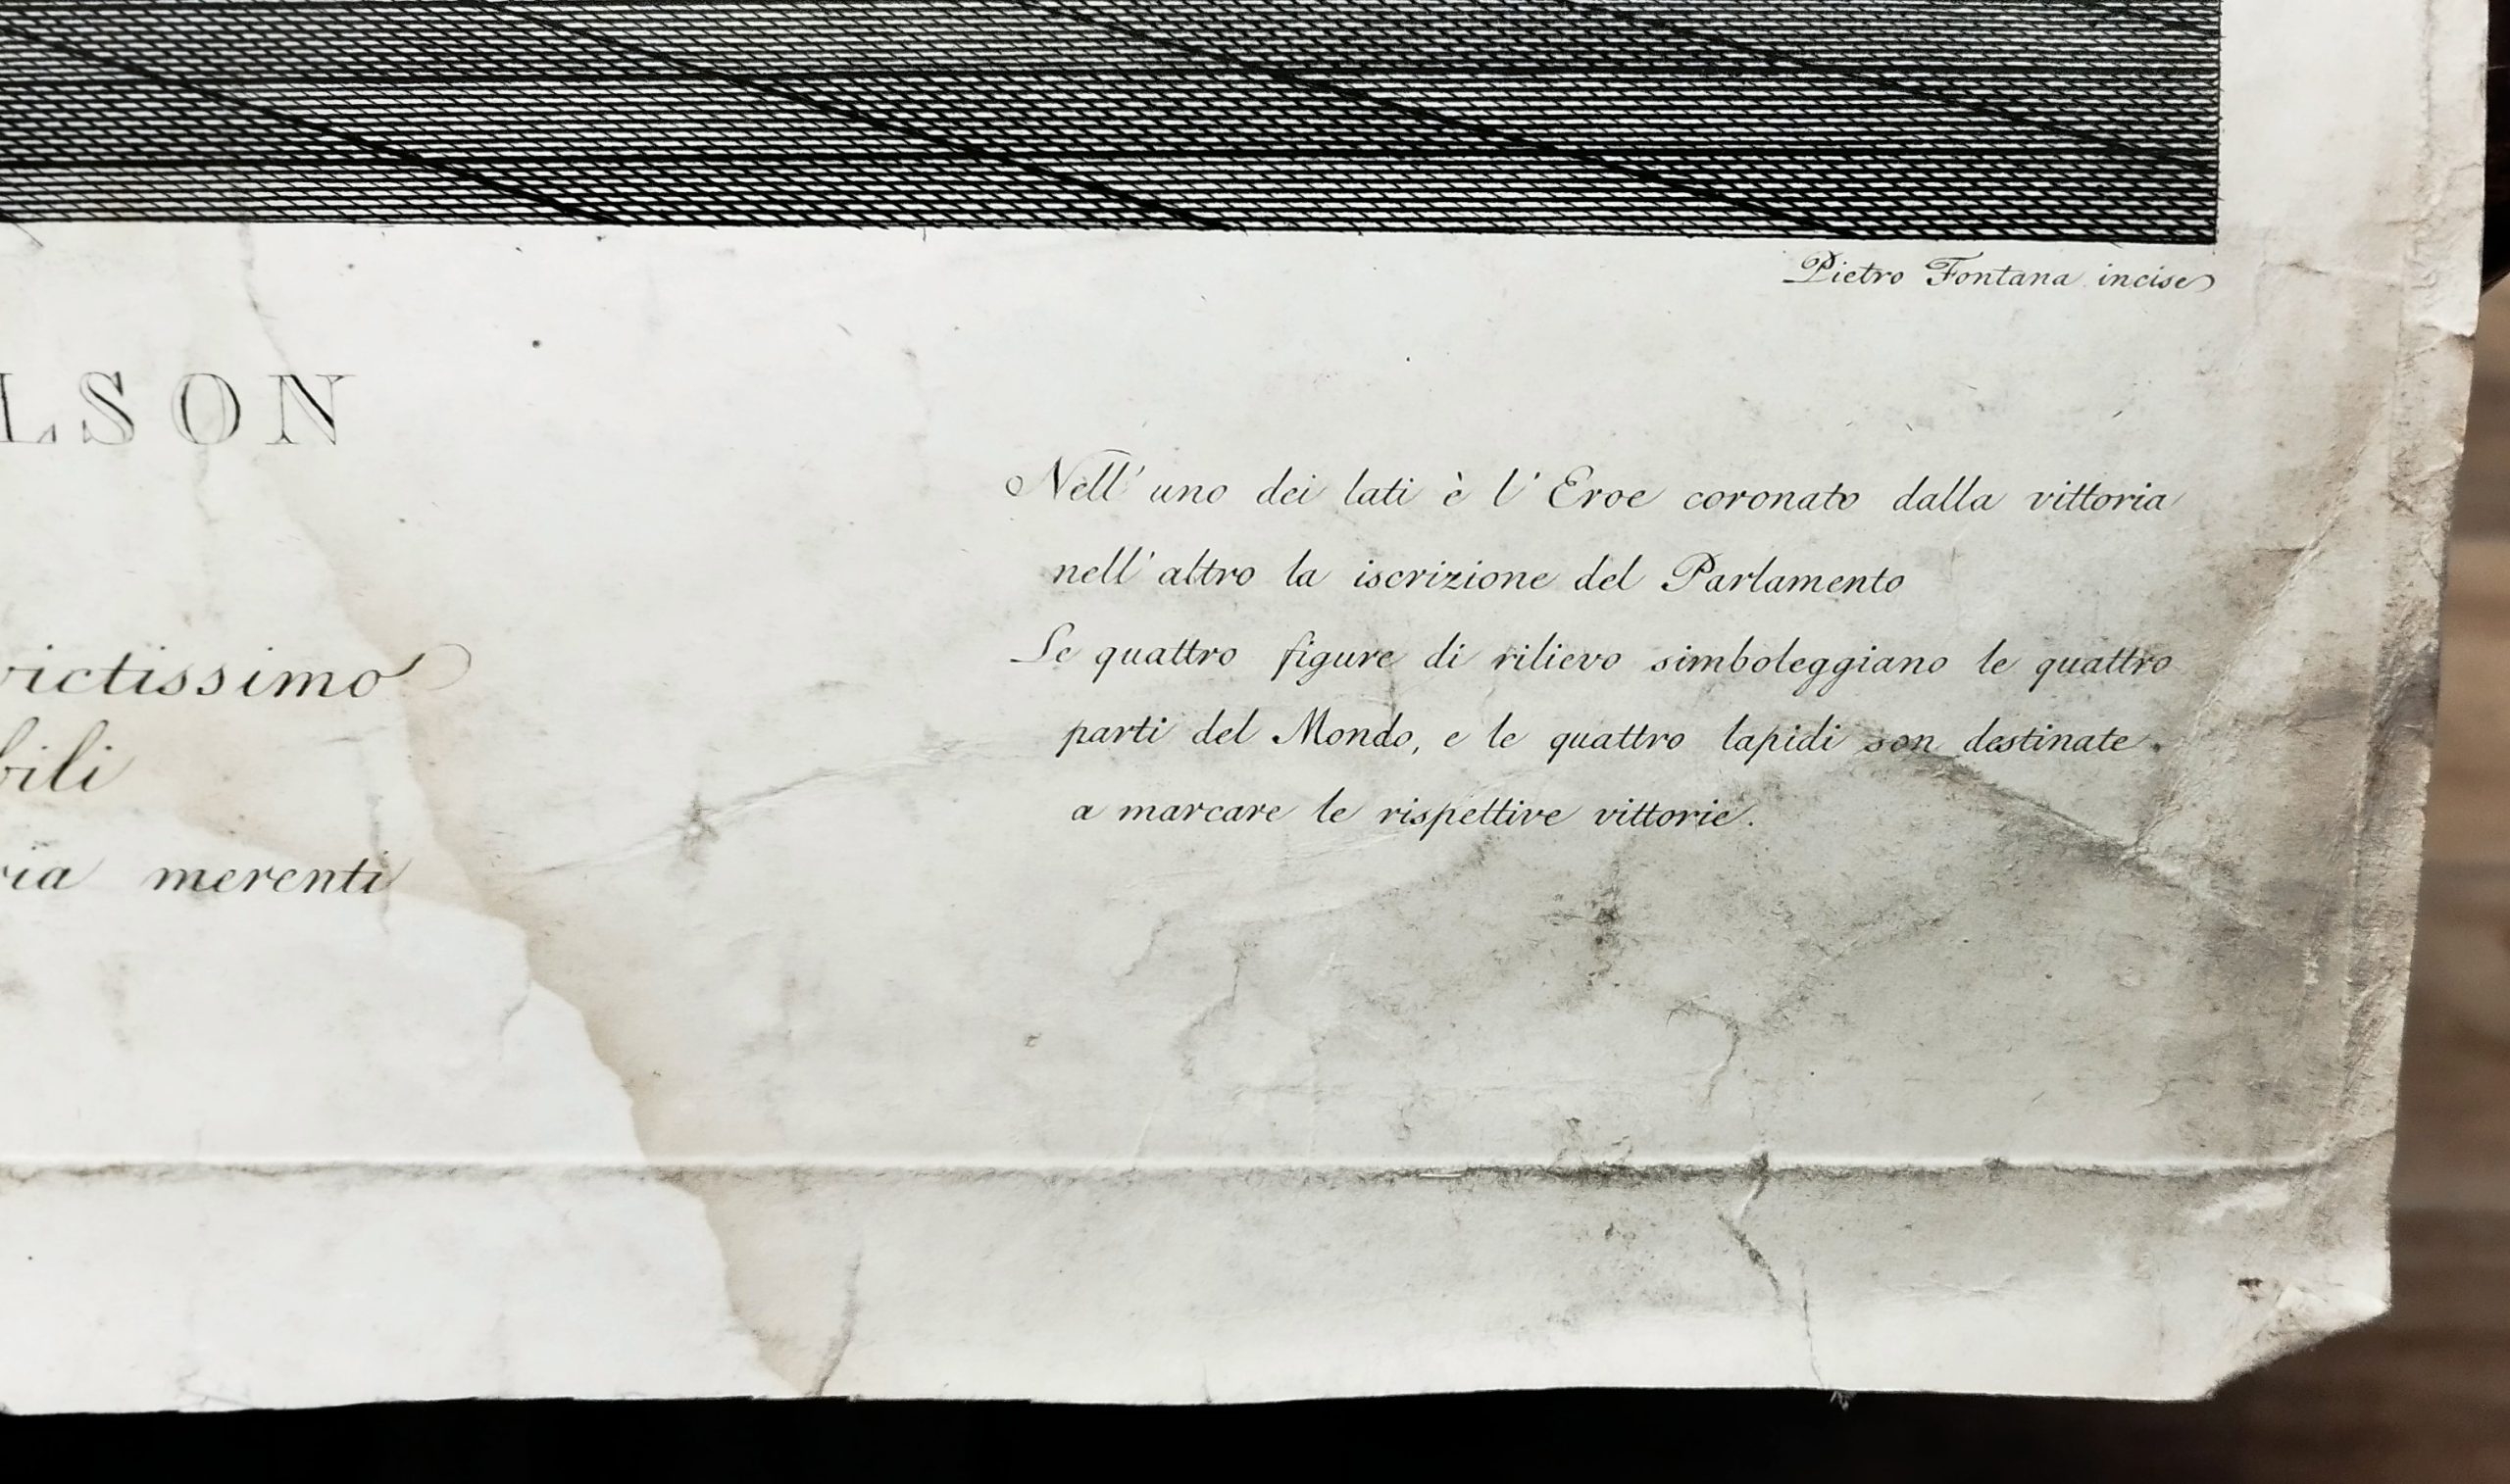 Pietro Fontana incise
LSON
Nell' uno dei lati è l' Eroe coronato dalla vittoria
nell' altro la iscrizione del Parlamento
Le quattro figure di rilievo simboleggiano le quattro
parti del Mondo, e le quattro lapidi son destinate
a marcare le rispettive vittorie.
victissimo
bili
ria merenti